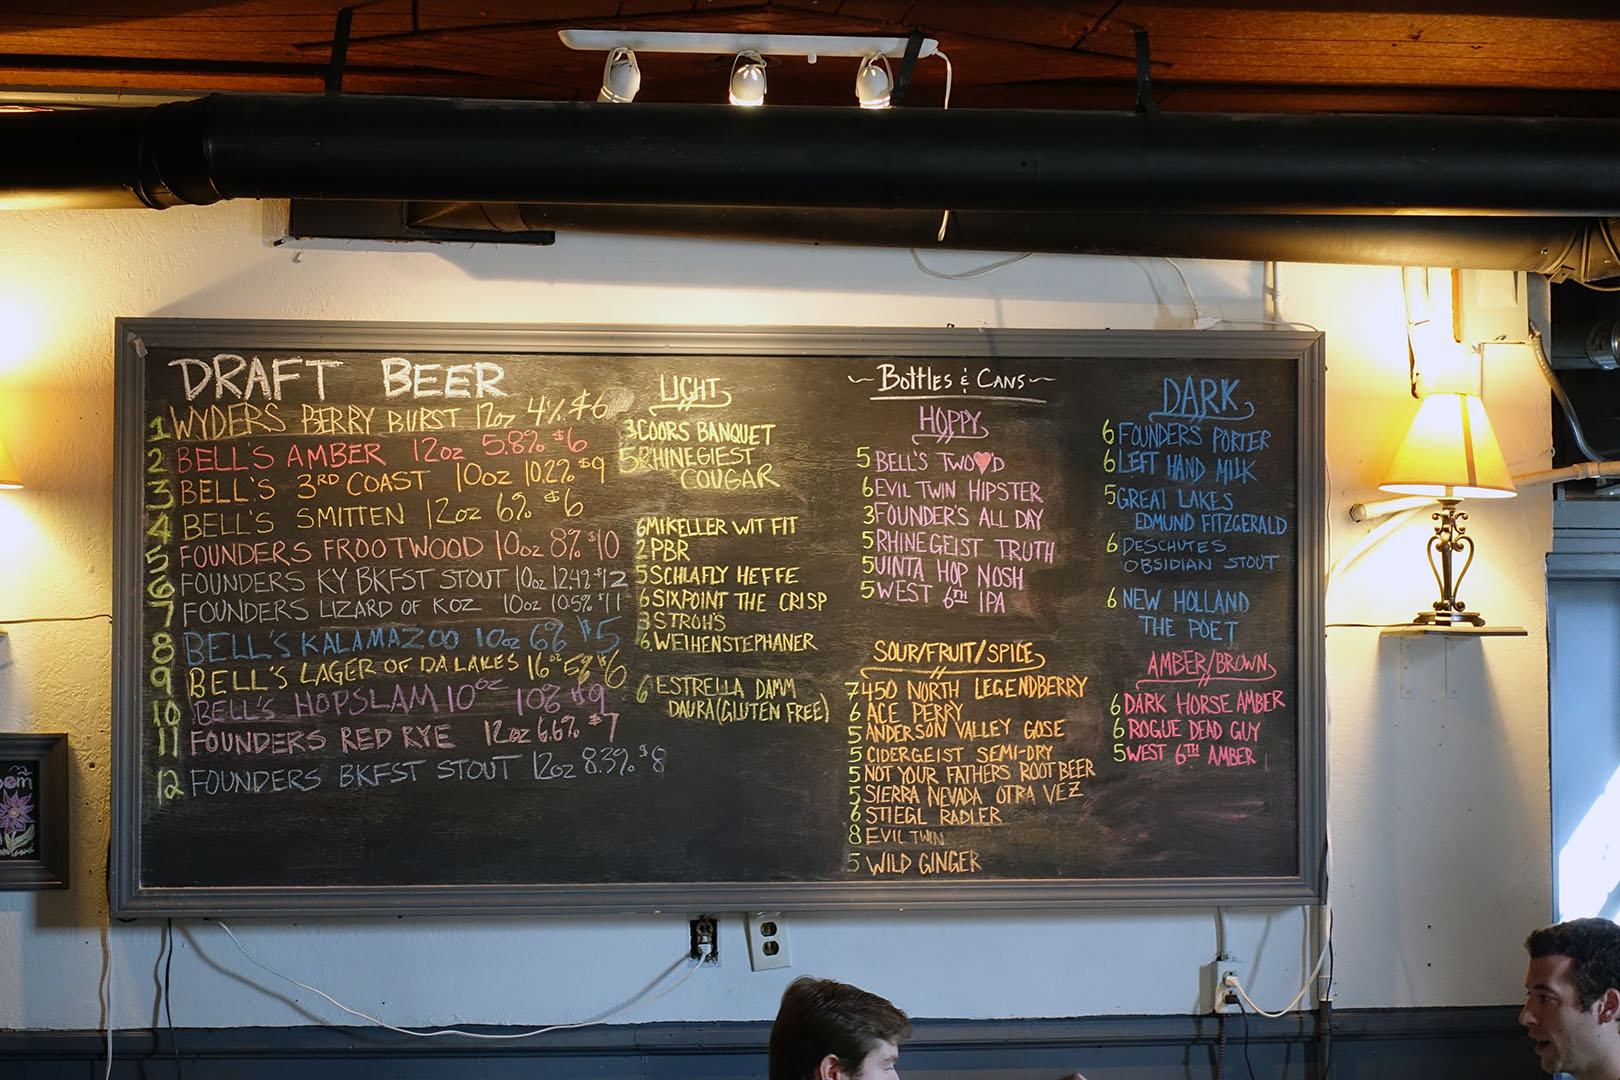 DRAFT BEER
1 WYDERS BERRY BURST 12oz 4% $6
2 BELL'S AMBER 12oz 5.8% $6
3 BELL'S 3RD COAST 10oz 10.2% $9
4 BELL'S SMITTEN 12oz 6% $6
5 FOUNDERS FROOTWOOD 10oz 8% $10
6 FOUNDERS KY BKFST STOUT 10oz 12.4% $12
7 FOUNDERS LIZARD OF KOZ 10oz 10.5% $11
8 BELL'S KALAMAZOO 10oz 6% $5
9 BELL'S LAGER OF DA LAKES 16oz 5% $6
10 BELL'S HOPSLAM 10oz 10% $9
11 FOUNDERS RED RYE 12oz 6.6% $7
12 FOUNDERS BKFST STOUT 12oz 8.3% $8
~Bottles & Cans~
LIGHT
3 COORS BANQUET
5 RHINEGIEST
COUGAR
6 MIKELLER WIT FIT
2 PBR
5 SCHLAFLY HEFFE
6 SIXPOINT THE CRISP
3 STROH'S
6 WEIHENSTEPHANER
6 ESTRELLA DAMM
DAURA (GLUTEN FREE)
HOPPY
5 BELL'S TWO♥'D
6 EVIL TWIN HIPSTER
3 FOUNDER'S ALL DAY
5 RHINEGEIST TRUTH
5 UINTA HOP NOSH
5 WEST 6TH IPA
SOUR/FRUIT/SPICE
7 450 NORTH LEGENDBERRY
6 ACE PERRY
5 ANDERSON VALLEY GOSE
5 CIDERGEIST SEMI-DRY
5 NOT YOUR FATHERS ROOT BEER
5 SIERRA NEVADA OTRA VEZ
6 STIEGL RADLER
8 EVIL TWIN
5 WILD GINGER
DARK
6 FOUNDERS PORTER
6 LEFT HAND MILK
5 GREAT LAKES
EDMUND FITZGERALD
6 DESCHUTES
OBSIDIAN STOUT
6 NEW HOLLAND
THE POET
AMBER/BROWN
6 DARK HORSE AMBER
6 ROGUE DEAD GUY
5 WEST 6TH AMBER